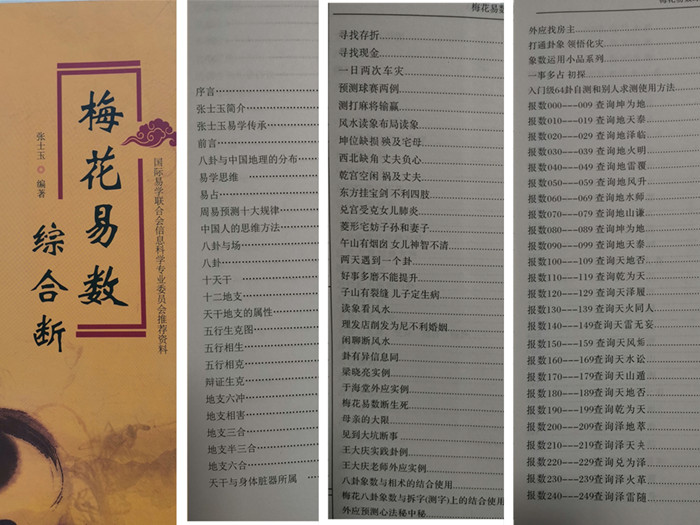 梅花易数
综合断
张士玉 编著
国际易学联合会信息科学专业委员会推荐资料
序言
张士玉简介
张士玉易学传承
前言
八卦与中国地理的分布
易学思维
易占
周易预测十大规律
中国人的思维方法
八卦与场
八卦
十天干
十二地支
天干地支的属性
五行生克图
五行相生
五行相克
辩证生克
地支六冲
地支相害
地支三合
地支半三合
地支六合
天干与身体脏器所属
梅花易数
寻找存折
寻找现金
一日两次车灾
预测球赛两例
测打麻将输赢
风水读象布局读象
坤位缺损 殃及宅母
西北缺角 丈夫负心
乾宫空闲 祸及丈夫
东方挂宝剑 不利四肢
兑宫受克女儿肺炎
菱形宅妨子孙和妻子
午山有烟囱 女儿神智不清
两天遇到一个卦
好事多磨不能提升
子山有裂缝 儿子定生病
读象看风水
理发店削发为尼不利婚姻
闲聊断风水
卦有异信息同
梁晓亮实例
于海堂外应实例
梅花易数断生死
母亲的大限
见到大坑断事
王大庆实践卦例
王大庆老师外应实例
八卦象数与相术的结合使用
梅花八卦象数与拆字(测字)上的结合使用
外应预测心法秘中秘
外应找房主
打通卦象 领悟化灾
象数运用小品系列
一事多占 初探
入门级64卦自测和别人求测使用方法
报数000---009 查询坤为地
报数010---019 查询地天泰
报数020---029 查询地泽临
报数030---039 查询地火明
报数040---049 查询地雷覆
报数050---059 查询地风升
报数060---069 查询地水师
报数070---079 查询地山谦
报数080---089 查询坤为地
报数090---099 查询地天泰
报数100---109 查询天地否
报数110---119 查询乾为天
报数120---129 查询天泽履
报数130---139 查询天火同人
报数140---149查询天雷无妄
报数150---159 查询天风姤
报数160---169查询天水讼
报数170---179查询天山遁
报数180---189查询天地否
报数190---199查询乾为天
报数200---209查询泽地萃
报数210---219查询泽天夬
报数220---229查询兑为泽
报数230---239查询泽火革
报数240---249查询泽雷随